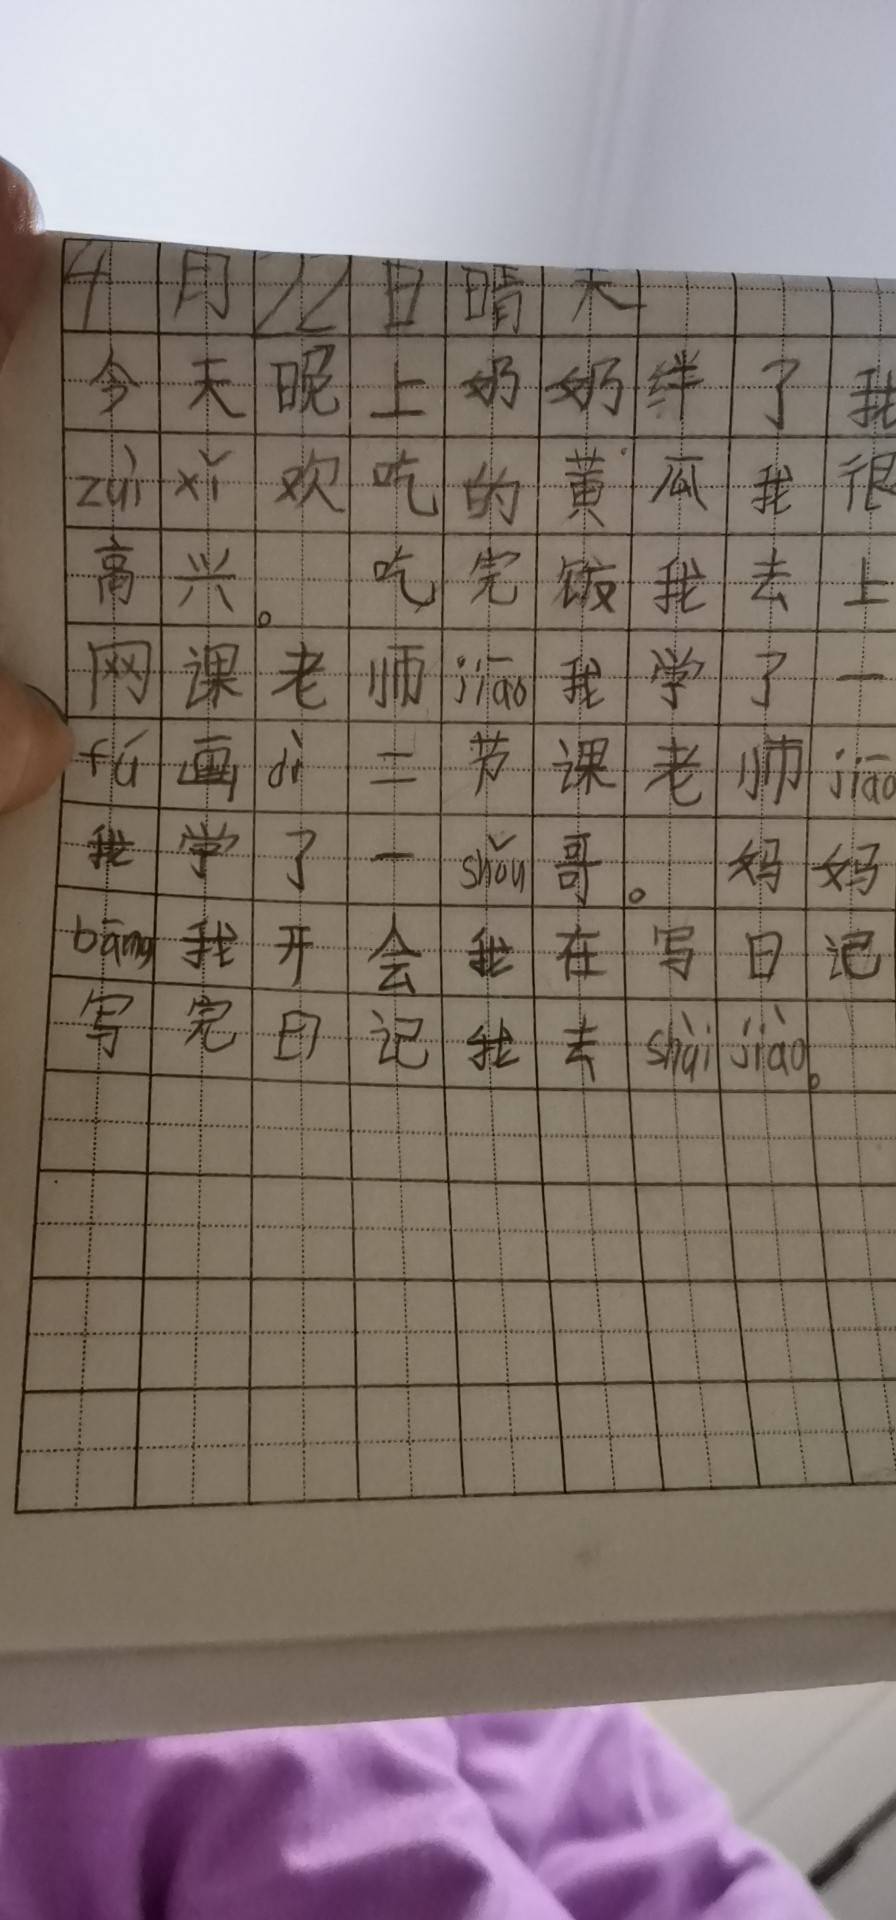 4月22日晴天
今天晚上奶奶绊了我
zuì xǐ欢吃的黄瓜我很
高兴。吃完饭我去上
网课老师jiāo我学了一
fú画dì二节课老师jiāo
我学了一shǒu哥。妈妈
bāng我开会我在写日记
写完日记我去shùi jiào。